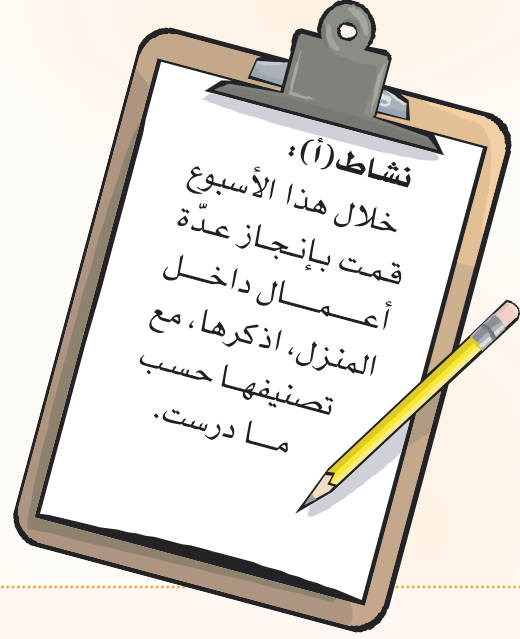 نشاط(أ):
خلال هذا الأسبوع
قمت بإنجاز عدّة
أعمال داخل
المنزل، اذكرها، مع
تصنيفها حسب
ما درست.